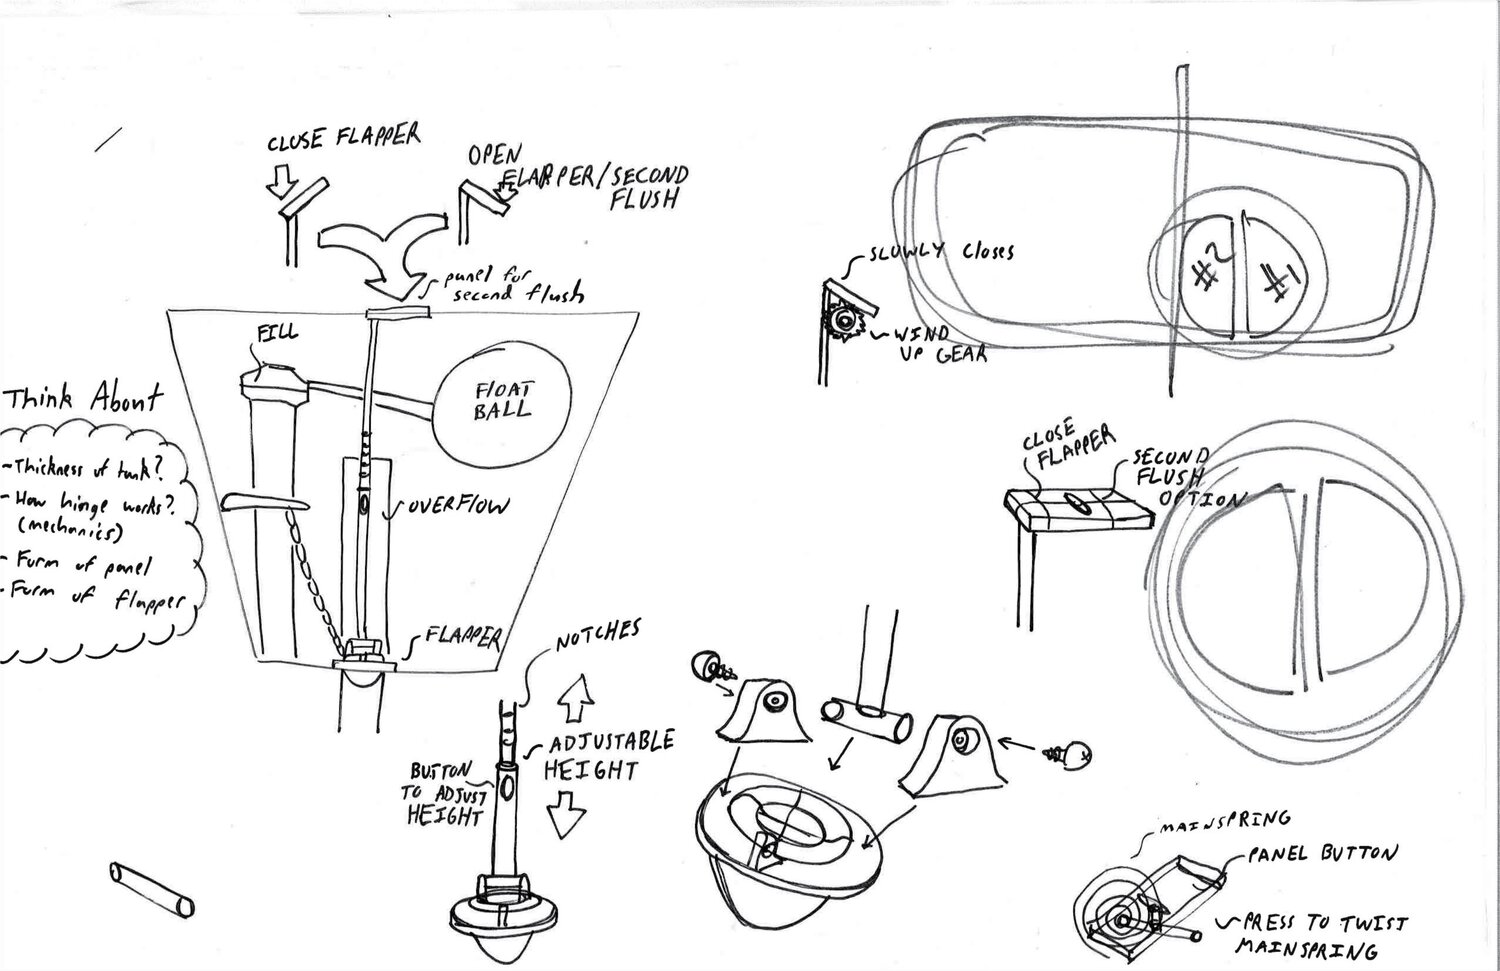 CLOSE FLAPPER
OPEN
FLAPPER/SECOND
FLUSH
panel for
second flush
FILL
FLOAT
BALL
OVERFLOW
FLAPPER
Think About
- Thickness of tank?
- How hinge works?
(mechanics)
- Form of panel
- Form of flapper
NOTCHES
ADJUSTABLE
HEIGHT
BUTTON
TO ADJUST
HEIGHT
SLOWLY Closes
WIND
UP GEAR
#2
#1
CLOSE
FLAPPER
SECOND
FLUSH
OPTION
MAINSPRING
PANEL BUTTON
PRESS TO TWIST
MAINSPRING